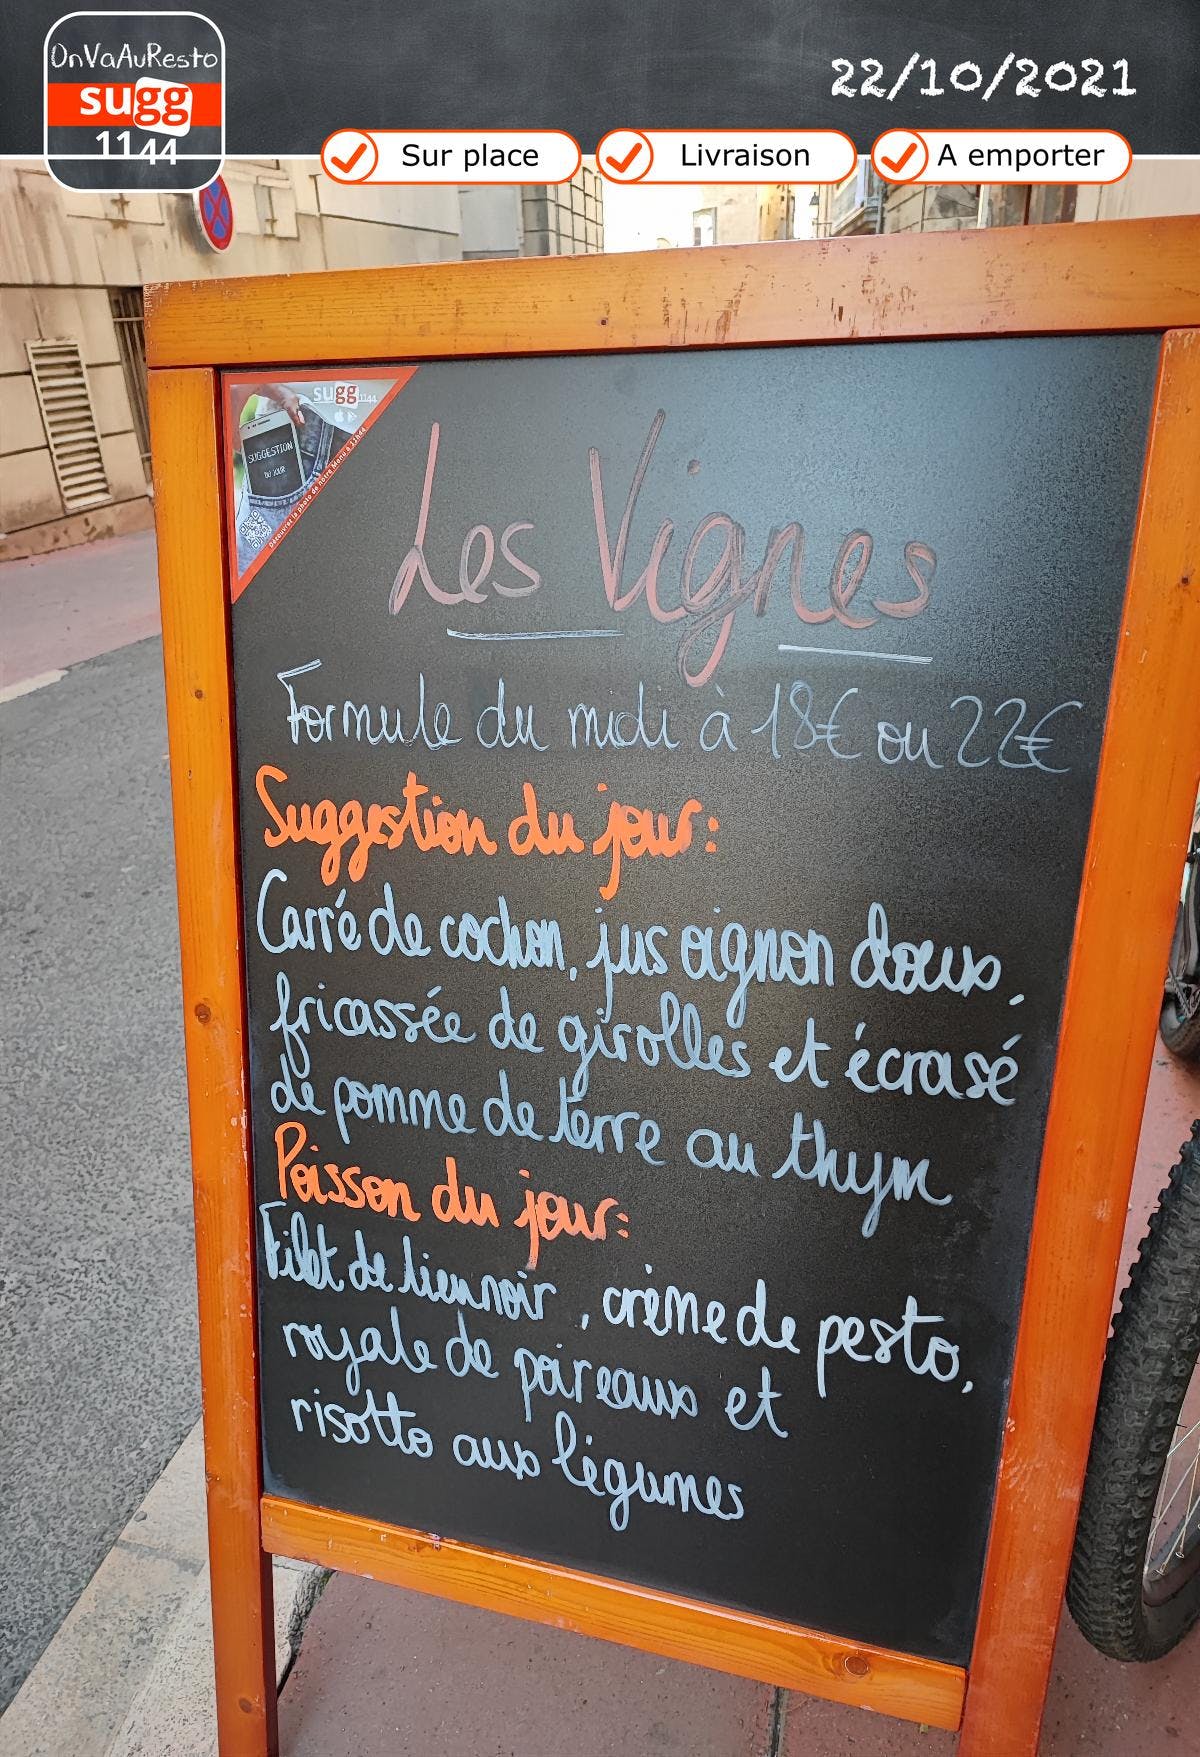 OnVaAuResto
sugg
1144
22/10/2021
Sur place
Livraison
A emporter
sugg1144
SUGGESTION
DU JOUR
Découvrez la photo de notre Menu à 11h44
Les Vignes
Formule du midi à 18€ ou 22€
Suggestion du jour:
Carré de cochon, jus oignon doux,
fricassée de girolles et écrasé
de pomme de terre au thym
Poisson du jour:
Filet de lieu noir, crème de pesto,
royale de poireaux et
risotto aux légumes